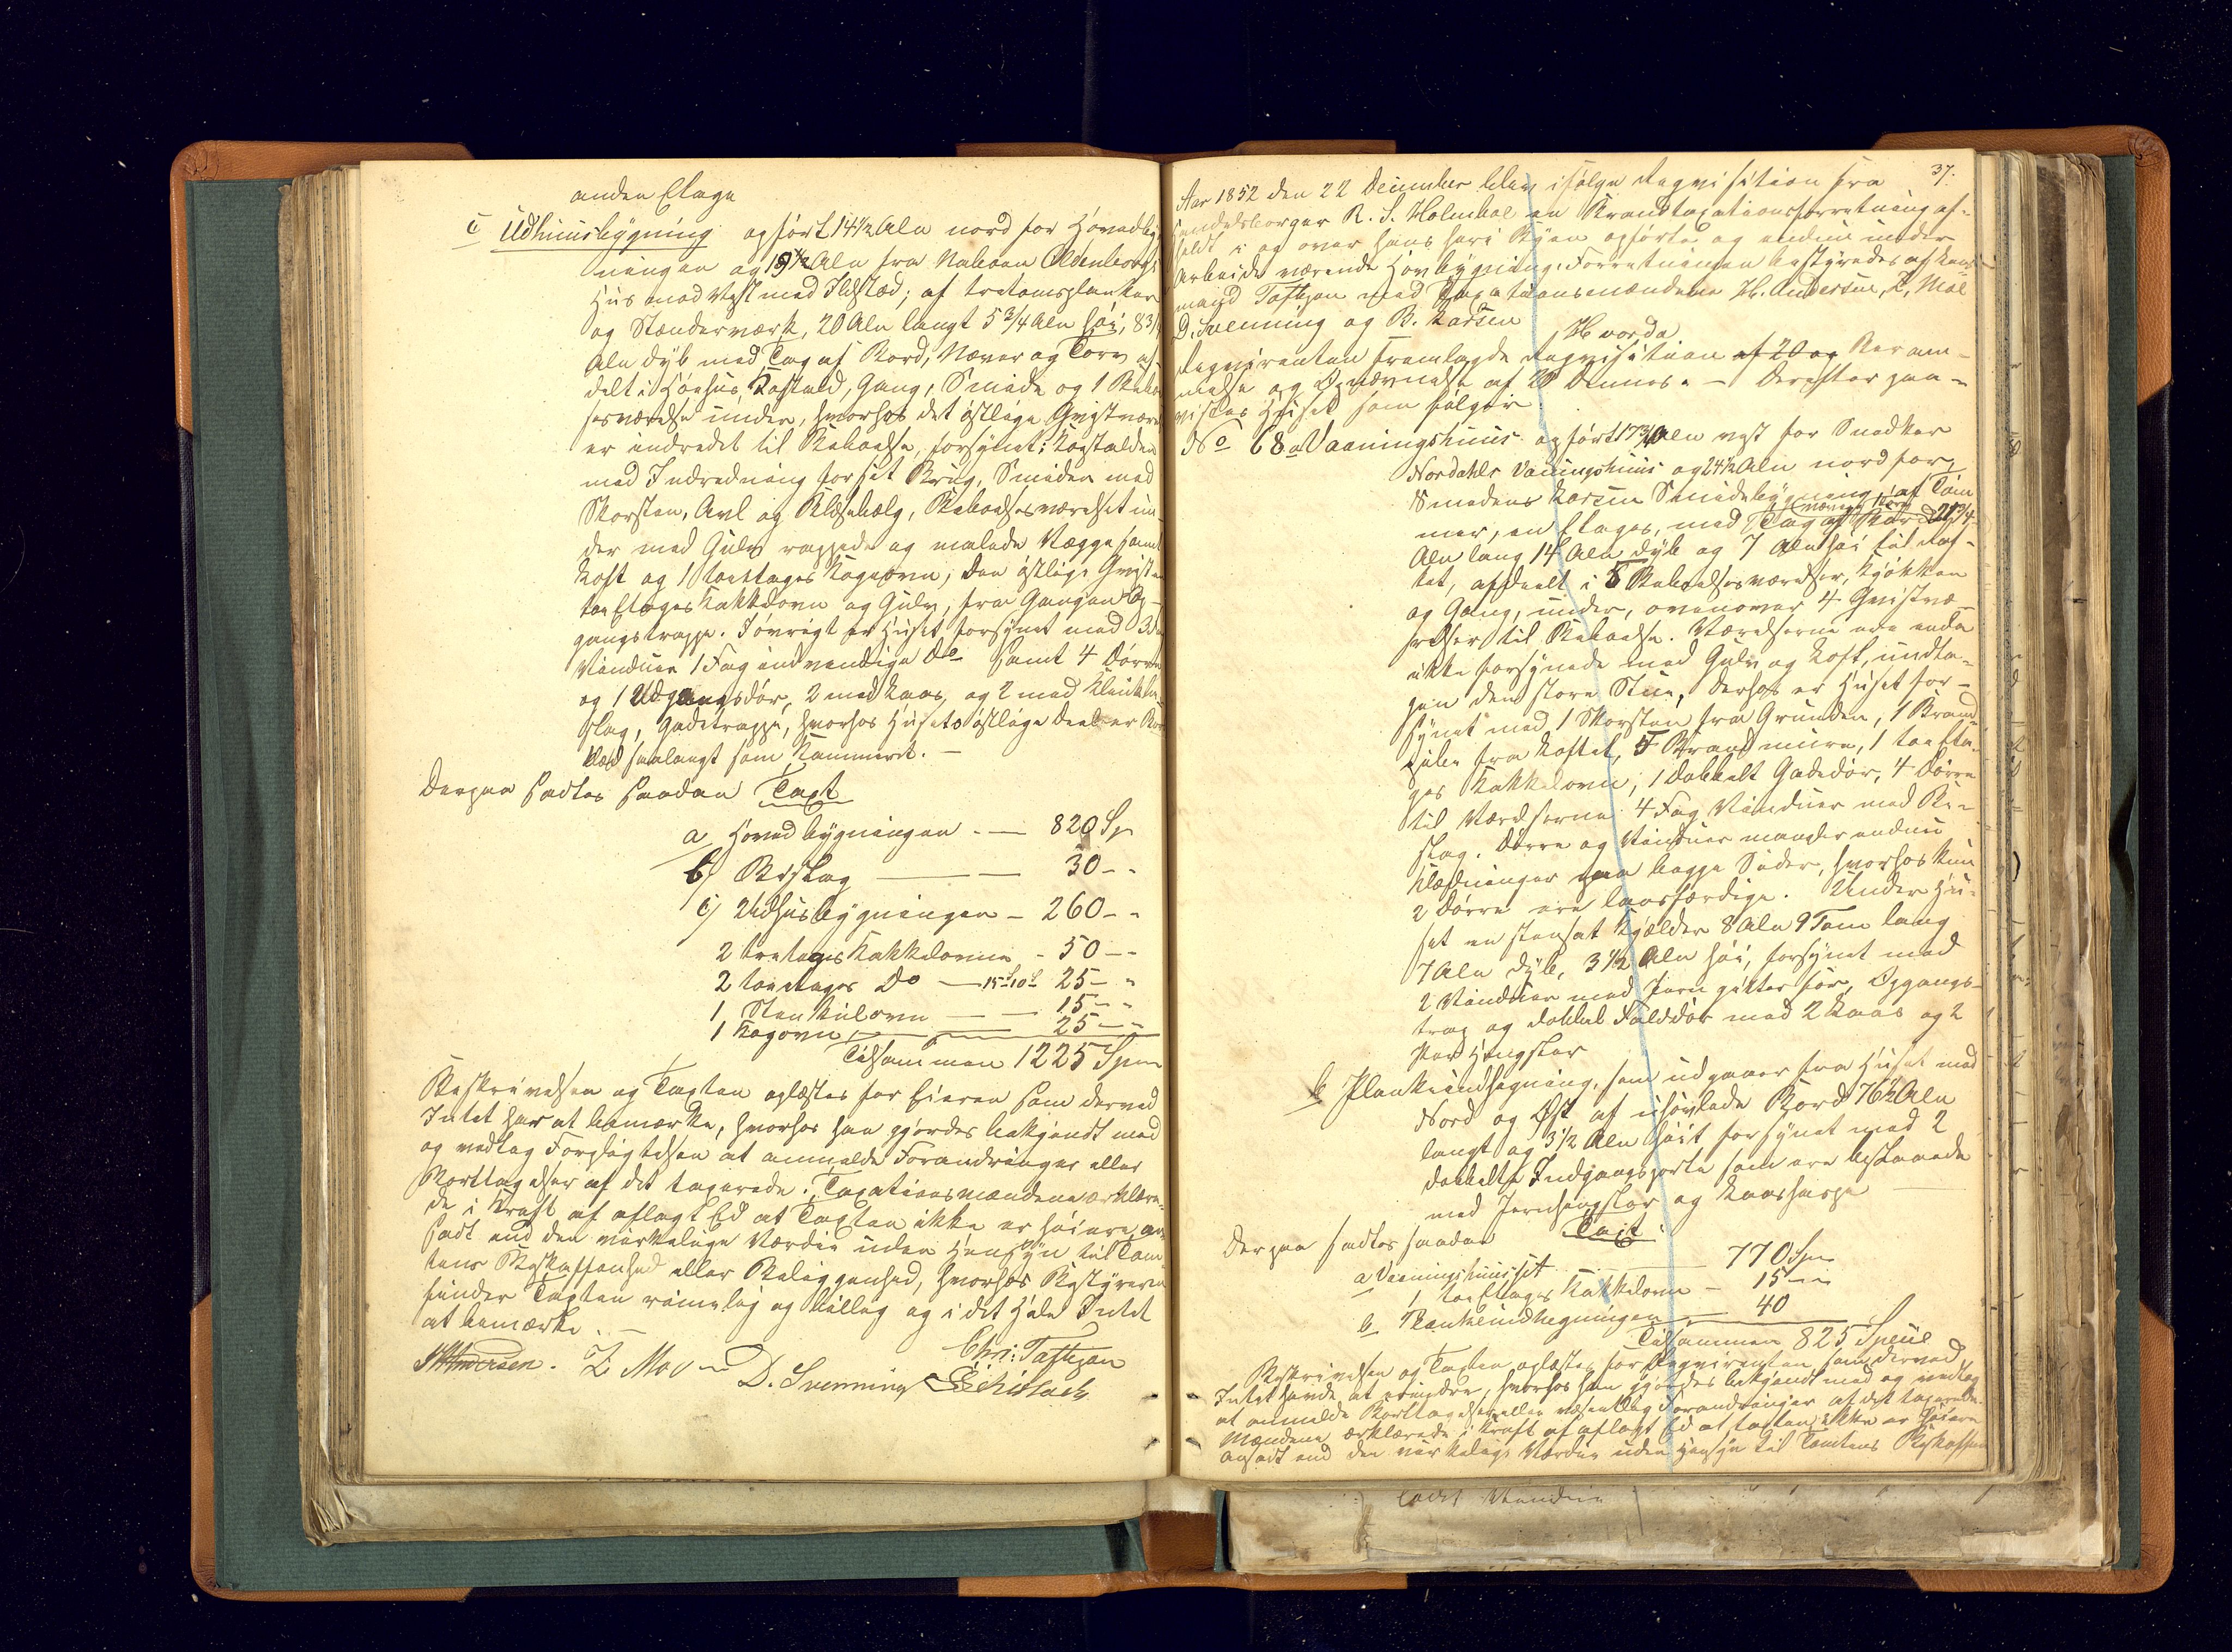 anden Etage
c Udhuusbygning opført 14 1/2 Alen nord for Hovedbyg
ningen og 19 1/2 Alen fra Naboen Oldenborgs
Huus mod Vest med Ildsted; af tretoms planker
og Stænderværk, 20 Alen langt 5 3/4 Alen høi, 8 3/4
Alen dyb med Tag af Bord, Næver og Torv af
delt i Høehuus, Kostald, Gang, Smide og 1 Beboel
sesværelse under, hvorhos det østlige Qvistværelse
er indredet til Beboelse, forsynet: Kostalden
med Indredning for sit Brug, Smiden med
Skorsten, Avl og Blæsebælg, Beboelsesværelset un-
der med Gulv rappede og malede Vægge samt
Loft og 1 toetages Kogeovn; den østlige Qvist en
toe Etages Kakkelovn og Gulv, fra Gangen Op-
gangstrappe. Iøvrigt er Huset forsynet med 3
Vinduer 1 Fag indvendige Do samt 4 Dørre
og 1 Udgangsdør, 2 med Laas, og 2 med Klinkebe-
slag, Gadetrappe, hvorhos Husets østlige Deel er Bord
klæd saalangt som Kammeret. —
Derpaa sattes saadan Taxt
a Hovedbygningen — 820 Sp
b) Bislag — 30 - -
c) Udhuusbygningen - 260 - -
2 tretages Kakkelovne - 50 - -
2 toeetages Do — 15 & 10 25 - -
1 Steenkulovn — 15 - -
1 Kogovn — 25 - -
Tilsammen 1225 Spm
Beskrivelsen og Taxten oplæstes for Eieren som derved
Intet har at bemærke, hvorhos han gjordes bekjendt med
og vedtog Forpligtelsen at anmelde Forandringer eller
Borttagelser af det taxerede. Taxationsmændene erklære-
de i Kraft af aflagt Ed at Taxten ikke er høiere an-
sadt end den virkelige Værdie uden Hensyn til Tom-
tens Beskaffenhed eller Beliggenhed, hvorhos Bestyreren
finder Taxten rimelig og billig og i det Hele Intet
at bemærke. —
H Andersen. Z. Moe D. Svenning Chr: Tostrpan
37.
Aar 1852 den 22 December blev ifølge Reqvisition fra
Handelsborger R. S. Holmboe en Brandtaxationsforretning af-
holdt i og over hans her i Byen opførte og endnu under
Arbeide værende Hovbygning. Forretningen bestyredes af Lens-
mand Tostrpan med Taxationsmændene H. Andersen, Z. Moe
D. Svenning og B. Larsen Hvorda
Reqvirenten fremlagde Reqvisition af 20 og Beram-
melse og Opnævnelse af 20 Dennes. — Derefter paa-
vistes Huset som følger:
No 68 a Vaaningshuus opført 17 3/4 Alen vest for Snedker
Nordahls Vaaningshuus og 24 1/2 Alen nord for
Smedens Larsens Smidebygning, af Töm
mer, en Etages, med Tag af Bord næver torv 21 3/4
Alen lang 14 Alen dyb og 7 Alen høi til Raf-
tet, afdeelt i 5 Beboelsesværelser, Kjøkken
og Gang, under, ovenover 4 Qvistvæ-
relser til Beboelse. Værelserne ere enda
ikke forsynede med Gulv og Loft, undta-
gen den store Stue, derhos er Huset for-
synet med 1 Skorsten fra Grunden, 1 Brand
pibe fra Loftet, 5 Brandmure, 1 toe Eta-
ges Kakkelovn, 1 dobbelt Gadedør, 4 Dørre
til Værelserne 4 Fag Vinduer med Be-
slag. Dørre og Vinduer mangler endnu
Klædninger paa begge Sider, hvorhos kun
2 Dørre ere laasfærdige. Under Hu-
set en stensat Kjælder 8 Alen 9 Tom lang
7 Alen dyb, 3 1/2 Alen høi, forsynet med
2 Vinduer med Jern gitter for, Opgangs-
trap og dobbel Falddør med 2 Laas og 2
Par Hengsler
b Plankeindhegning, som udgaaer fra Huset mod
Nord og Øst af uhøvlede Bord 76 1/2 Alen
langt og 3 1/2 Alen høit forsynet med 2
dobbelte Indgangsporte som ere beslaaede
med Jernhengsler og Laashaspe —
Derpaa sattes saadan Taxt:
a Vaaningshuuset — 770 Spm
1 toe Etages Kakkelovn — 15 - -
b Plankeindhegningen — 40
Tilsammen 825 Specie
Beskrivelsen og Taxten oplæstes for Reqvirenten som derved
Intet havde at erindre, hvorhos han gjordes bekjendt med og vedtog
at anmelde Borttagelser eller væsentlig Forandringer af det taxerede.
Mændene erklærede i Kraft af aflagt Ed at taxten ikke er høiere
ansadt end den virkelige Værdie uden Hensyn til Tomtens Beskaffen